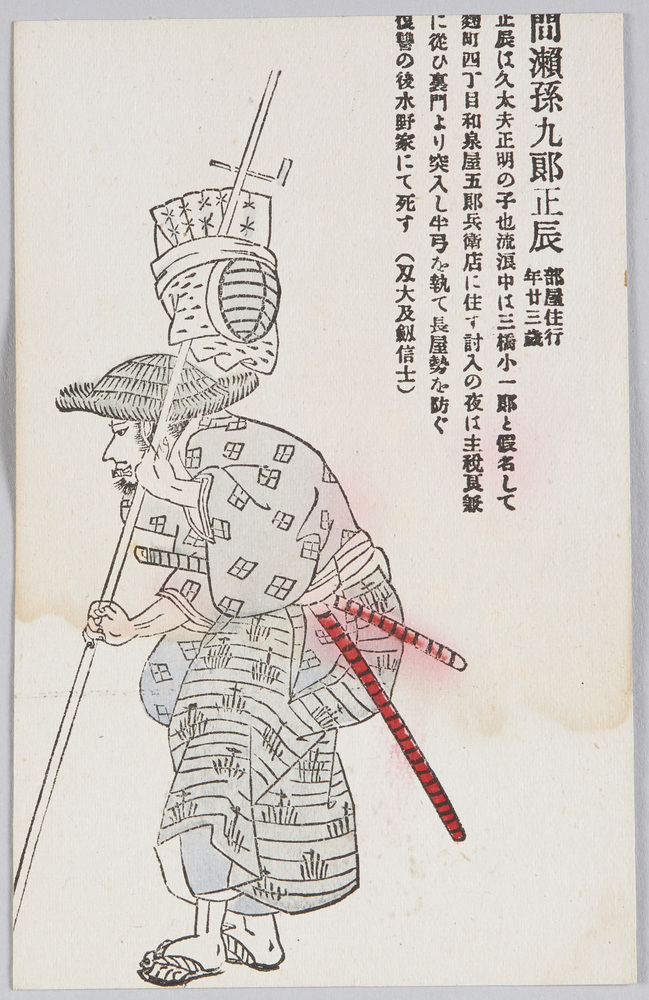 間瀨孫九郎正辰
部屋住行
年廿三歲
正辰は久太夫正明の子也流浪中は三橋小一郎と假名して
麹町四丁目和泉屋五郎兵衛店に住す討入の夜は主稅良金
に從ひ裏門より突入し半弓を執て長屋勢を防ぐ
復讐の後水野家にて死す (刄太及劔信士)